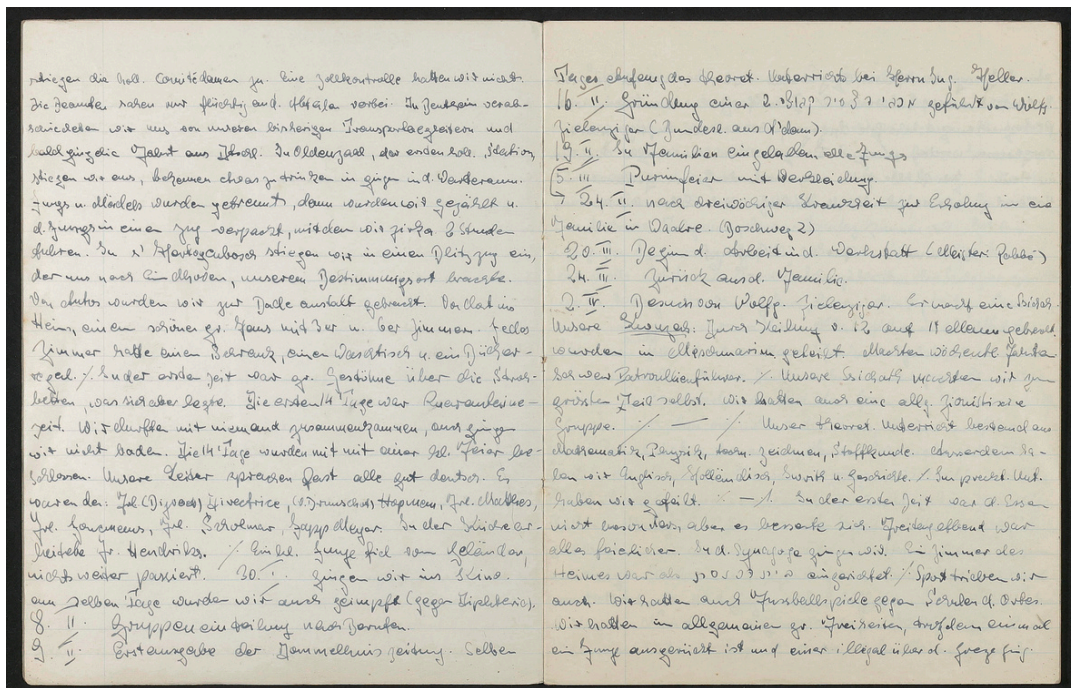 stiegen die holl. Comitédamen zu. Eine Zollkontrolle hatten wir nicht.
Die Beamten sahen nur flüchtig and. Abteilen vorbei. In Bentheim verab-
schiedeten wir uns von unseren bisherigen Transportbegleitern und
bald ging die Fahrt aus Dtschl. In Oldenzaal, der ersten holl. Station,
stiegen wir aus, bekamen etwas zu trinken u. gingen in d. Warteraum.
Jungs u. Mädels wurden getrennt, dann wurden wir gezählt u.
d. Jungs in einen Zug verpackt, mit dem wir zirka 2 Stunden
fuhren. In s' Hertogenbosch stiegen wir in einen Blitzzug ein,
der uns nach Eindhoven, unserem Bestimmungsort brachte.
Von Autos wurden wir zur Badeanstalt gebracht. Von dort ins
Heim, einem schönen gr. Haus mit 3er u. 6er Zimmern. Jedes
Zimmer hatte einen Schrank, einen Waschtisch u. ein Bücher-
regal. ·/. In der ersten Zeit war gr. Gestöhne über die Stroh-
betten, was sich aber legte. Die ersten 14 Tage war Quarantäne-
zeit. Wir durften mit niemand zusammenkommen, auch gingen
wir nicht baden. Die 14 Tage wurden mit mit einer kl. Feier be-
schlossen. Unsere Leiter sprachen fast alle gut deutsch. Es
waren da: Frl. Directrice, Frl. Matthes,
Frl. Frl. In der Küche ar-
beitete Fr. Hendriks. ·/. Ein kl. Junge fiel vom Geländer,
nichts weiter passiert. 30. I. gingen wir ins Kino.
am selben Tage wurden wir auch geimpft (gegen Diphterie).
8. II. Gruppeneinteilung nach Berufen.
9. II. Erstausgabe der Dommelhuiszeitung. Selben
Tages Anfang des theoret. Unterrichts bei Herrn Ing. Heller.
16. II. Gründung einer 2. מכבי הצעיר קבוצה geführt von Wolfg.
Zielenziger (Bundesl. aus A'dam).
19. II. In Familien eingeladen alle Jungs
5. III Purimfeier mit Verkleidung.
→ 24. II. nach dreiwöchiger Krankheit zur Erholung in eine
Familie in Waalre. (Boschweg 2)
20. III. Beginn d. Arbeit in d. Werkstatt (Meister:
24. III zurück aus d. Familie.
2. IV. Besuch von Wolfg. Zielenziger. Er macht eine Ssichah.
Unsere Kwuzah: Durch Teilung v. 12 auf 11 gebracht
wurden in geteilt. Machten wöchentl. Fahrten
Patrouillenführer. ·/. Unsere Ssichoth machten wir zum
grössten Teil selbst. Wir hatten auch eine allg. Zionistische
Gruppe. ·/. — ·/. Unser theoret. Unterricht bestand aus
Mathematik, Physik, techn. zeichnen, Stoffkunde. Ausserdem ha-
ben wir Englisch, Holländisch, Iwrith u. Geschichte. ·/. Im prackt. Unt.
haben wir gefeilt. ·/. — ·/. In der ersten Zeit war d. Essen
nicht besonders, aber es besserte sich. Freitag abend war
alles feierlicher. In d. Synagoge gingen wir. Ein Zimmer des
Heimes war als בית הכנסת eingerichtet. ·/. Sport trieben wir
auch. Wir hatten auch Fussballspiele gegen Schulen d. Ortes.
Wir hatten im allgemeinen gr. Freiheiten, trotzdem einmal
ein Junge ausgerückt ist und einer illegal über d. Grenze ging.